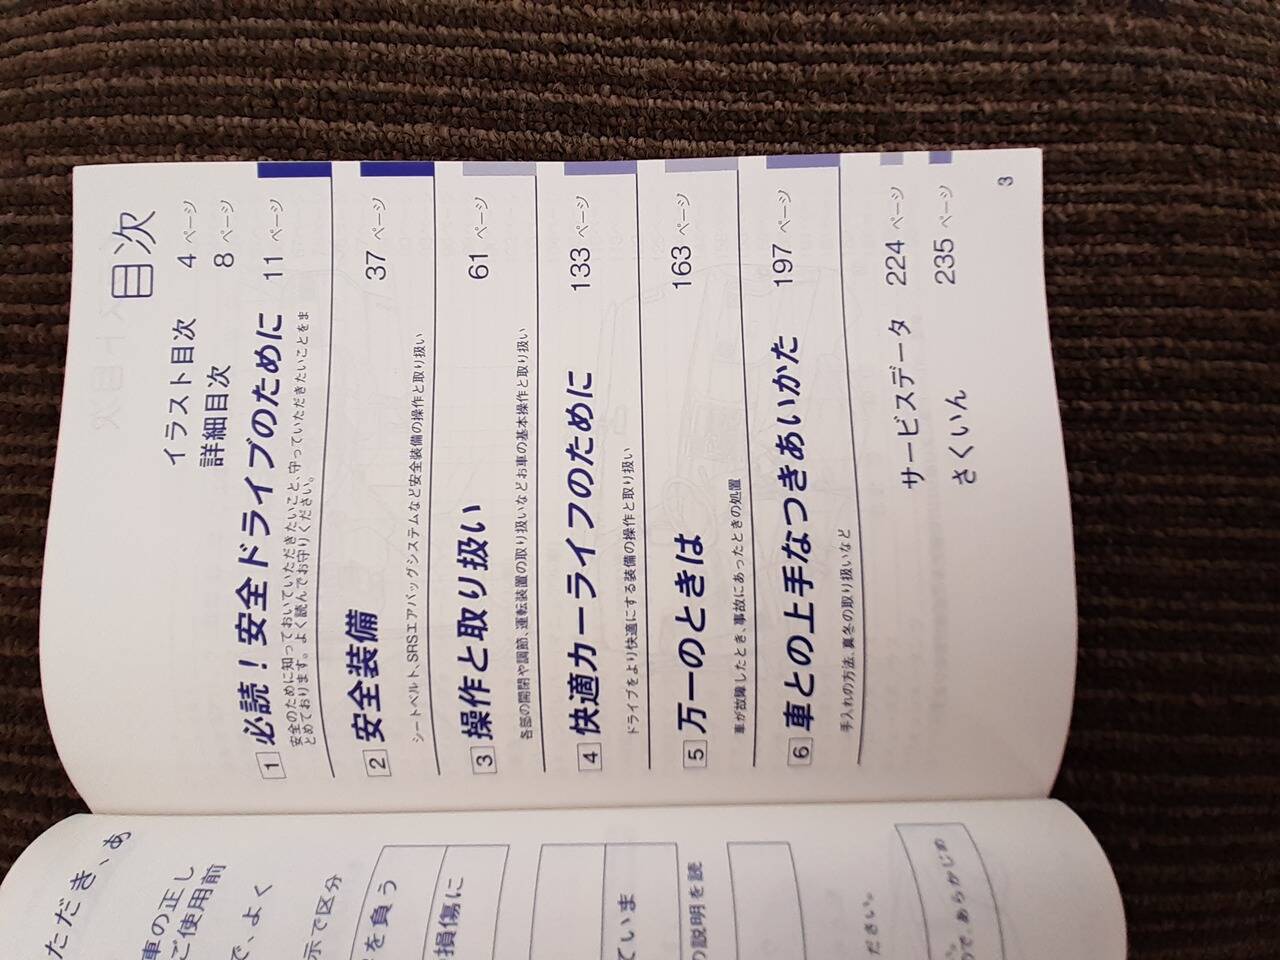 目次
イラスト目次 4 ページ
詳細目次 8 ページ
1 必読！安全ドライブのために 11 ページ
安全のために知っておいていただきたいこと、守っていただきたいことをま
とめております。よく読んでお守りください。
2 安全装備 37 ページ
シートベルト、SRSエアバッグシステムなど安全装備の操作と取り扱い
3 操作と取り扱い 61 ページ
各部の開閉や調節、運転装置の取り扱いなどお車の基本操作と取り扱い
4 快適カーライフのために 133 ページ
ドライブをより快適にする装備の操作と取り扱い
5 万一のときは 163 ページ
車が故障したとき、事故にあったときの処置
6 車との上手なつきあいかた 197 ページ
手入れの方法、真冬の取り扱いなど
サービスデータ 224 ページ
さくいん 235 ページ
3
ただき、あ
車の正し
ご使用前
で、よく
示で区分
を負う
損傷に
ていま
の説明を読
ださい。
ので、あらかじめ